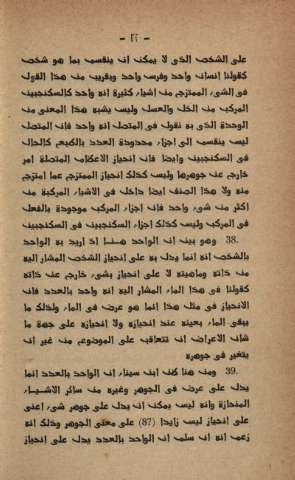 - ٢٢ -
على الشخص الذى لا يمكن ان ينقسم بما هو شخص
كقولنا انسان واحد وفرس واحد وبقريب من هذا القول
فى الشىء الممتزج من اشياء كثيرة انه واحد كالسكنجبين
المركب من الخل والعسل وليس يشبه هذا المعنى من
الوحدة الذى به نقول فى المتصل انه واحد فان المتصل
ليس ينقسم الى اجزاء محدودة العدد بالطبع كالحال
فى السكنجبين وايضا فان انحياز الاعظام المتصلة امر
خارج عن جوهرها وليس كذلك انحياز الممتزج عما امتزج
منه ولا هذا الصنف ايضا داخل فى الاشياء المركبة من
اكثر من شىء واحد فان اجزاء المركب موجودة بالفعل
فى المركب وليس كذلك اجزاء السكنجبين فى السكنجبين
38. وهو بين ان الواحد هنا اذ اريد به الواحد
بالشخص انه انما يدل به على انحياز الشخص المشار اليه
من ذاته وماهيته لا على انحياز بشىء خارج عن ذاته
كقولنا فى هذا الماء المشار اليه انه واحد بالعدد فان
الانحياز فى مثل هذا انما هو عرض فى الماء ولذلك ما
يبقى الماء بعينه عند انحيازه ولا انحيازه على جهة ما
شان الاعراض ان تتعاقب على الموضوع من غير ان
يتغير فى جوهره
39. ومن هنا ظن ابن سينا ان الواحد بالعدد انما
يدل على عرض فى الجوهر وغيره من سائر الاشياء
المنحازة وانه ليس يمكن ان يدل على جوهر شىء اعنى
على انحياز ليس زايدا (87) على معنى الجوهر وذلك انه
زعم انه ان سلم ان الواحد بالعدد يدل على انحياز